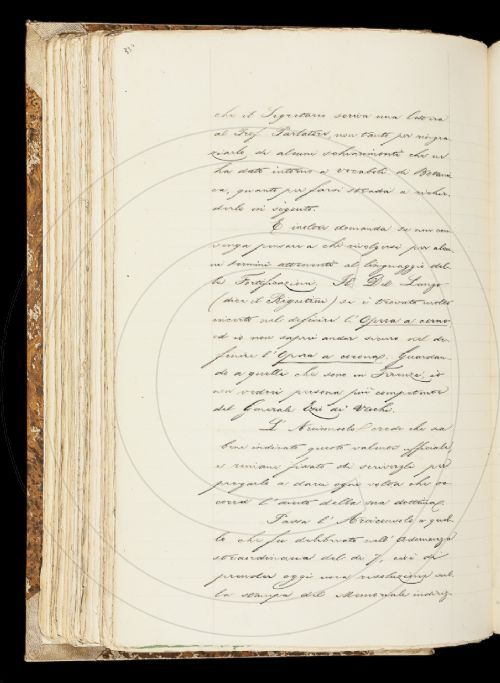 che il Segretario scriva una lettera
al Prof. Parlatore, non tanto per ringra
ziarlo di alcuni schiarimenti che ci
ha dato intorno a vocaboli di Botani
ca, quanto per farsi strada a richie-
derlo in seguito.
E inoltre domanda se non con
venga pensare a chi rivolgersi per alcu
ni termini attenenti al linguaggio del-
la Fortificazione. Il Del Lungo
(dice il Rigutini) si è trovato molto
incerto nel definire l'Opera a corno,
ed io non saprei andar sicuro nel de-
finire l'Opera a corona. Guardan-
do a quelli che sono in Firenze, io
non vedrei persona più competente
del Generale Ezio di Vecchi.
L'Arciconsolo crede che sia
bene indicato questo valente officiale,
e rimane fissato di scrivergli per
pregarlo a darci ogni volta che oc
corra l'aiuto della sua dottrina.
Passa l'Arciconsolo a quel-
lo che fu deliberato nell'Adunanza
straordinaria del dì 7, cioè di
prender oggi una risoluzione sul-
la stampa del Memoriale indiriz-